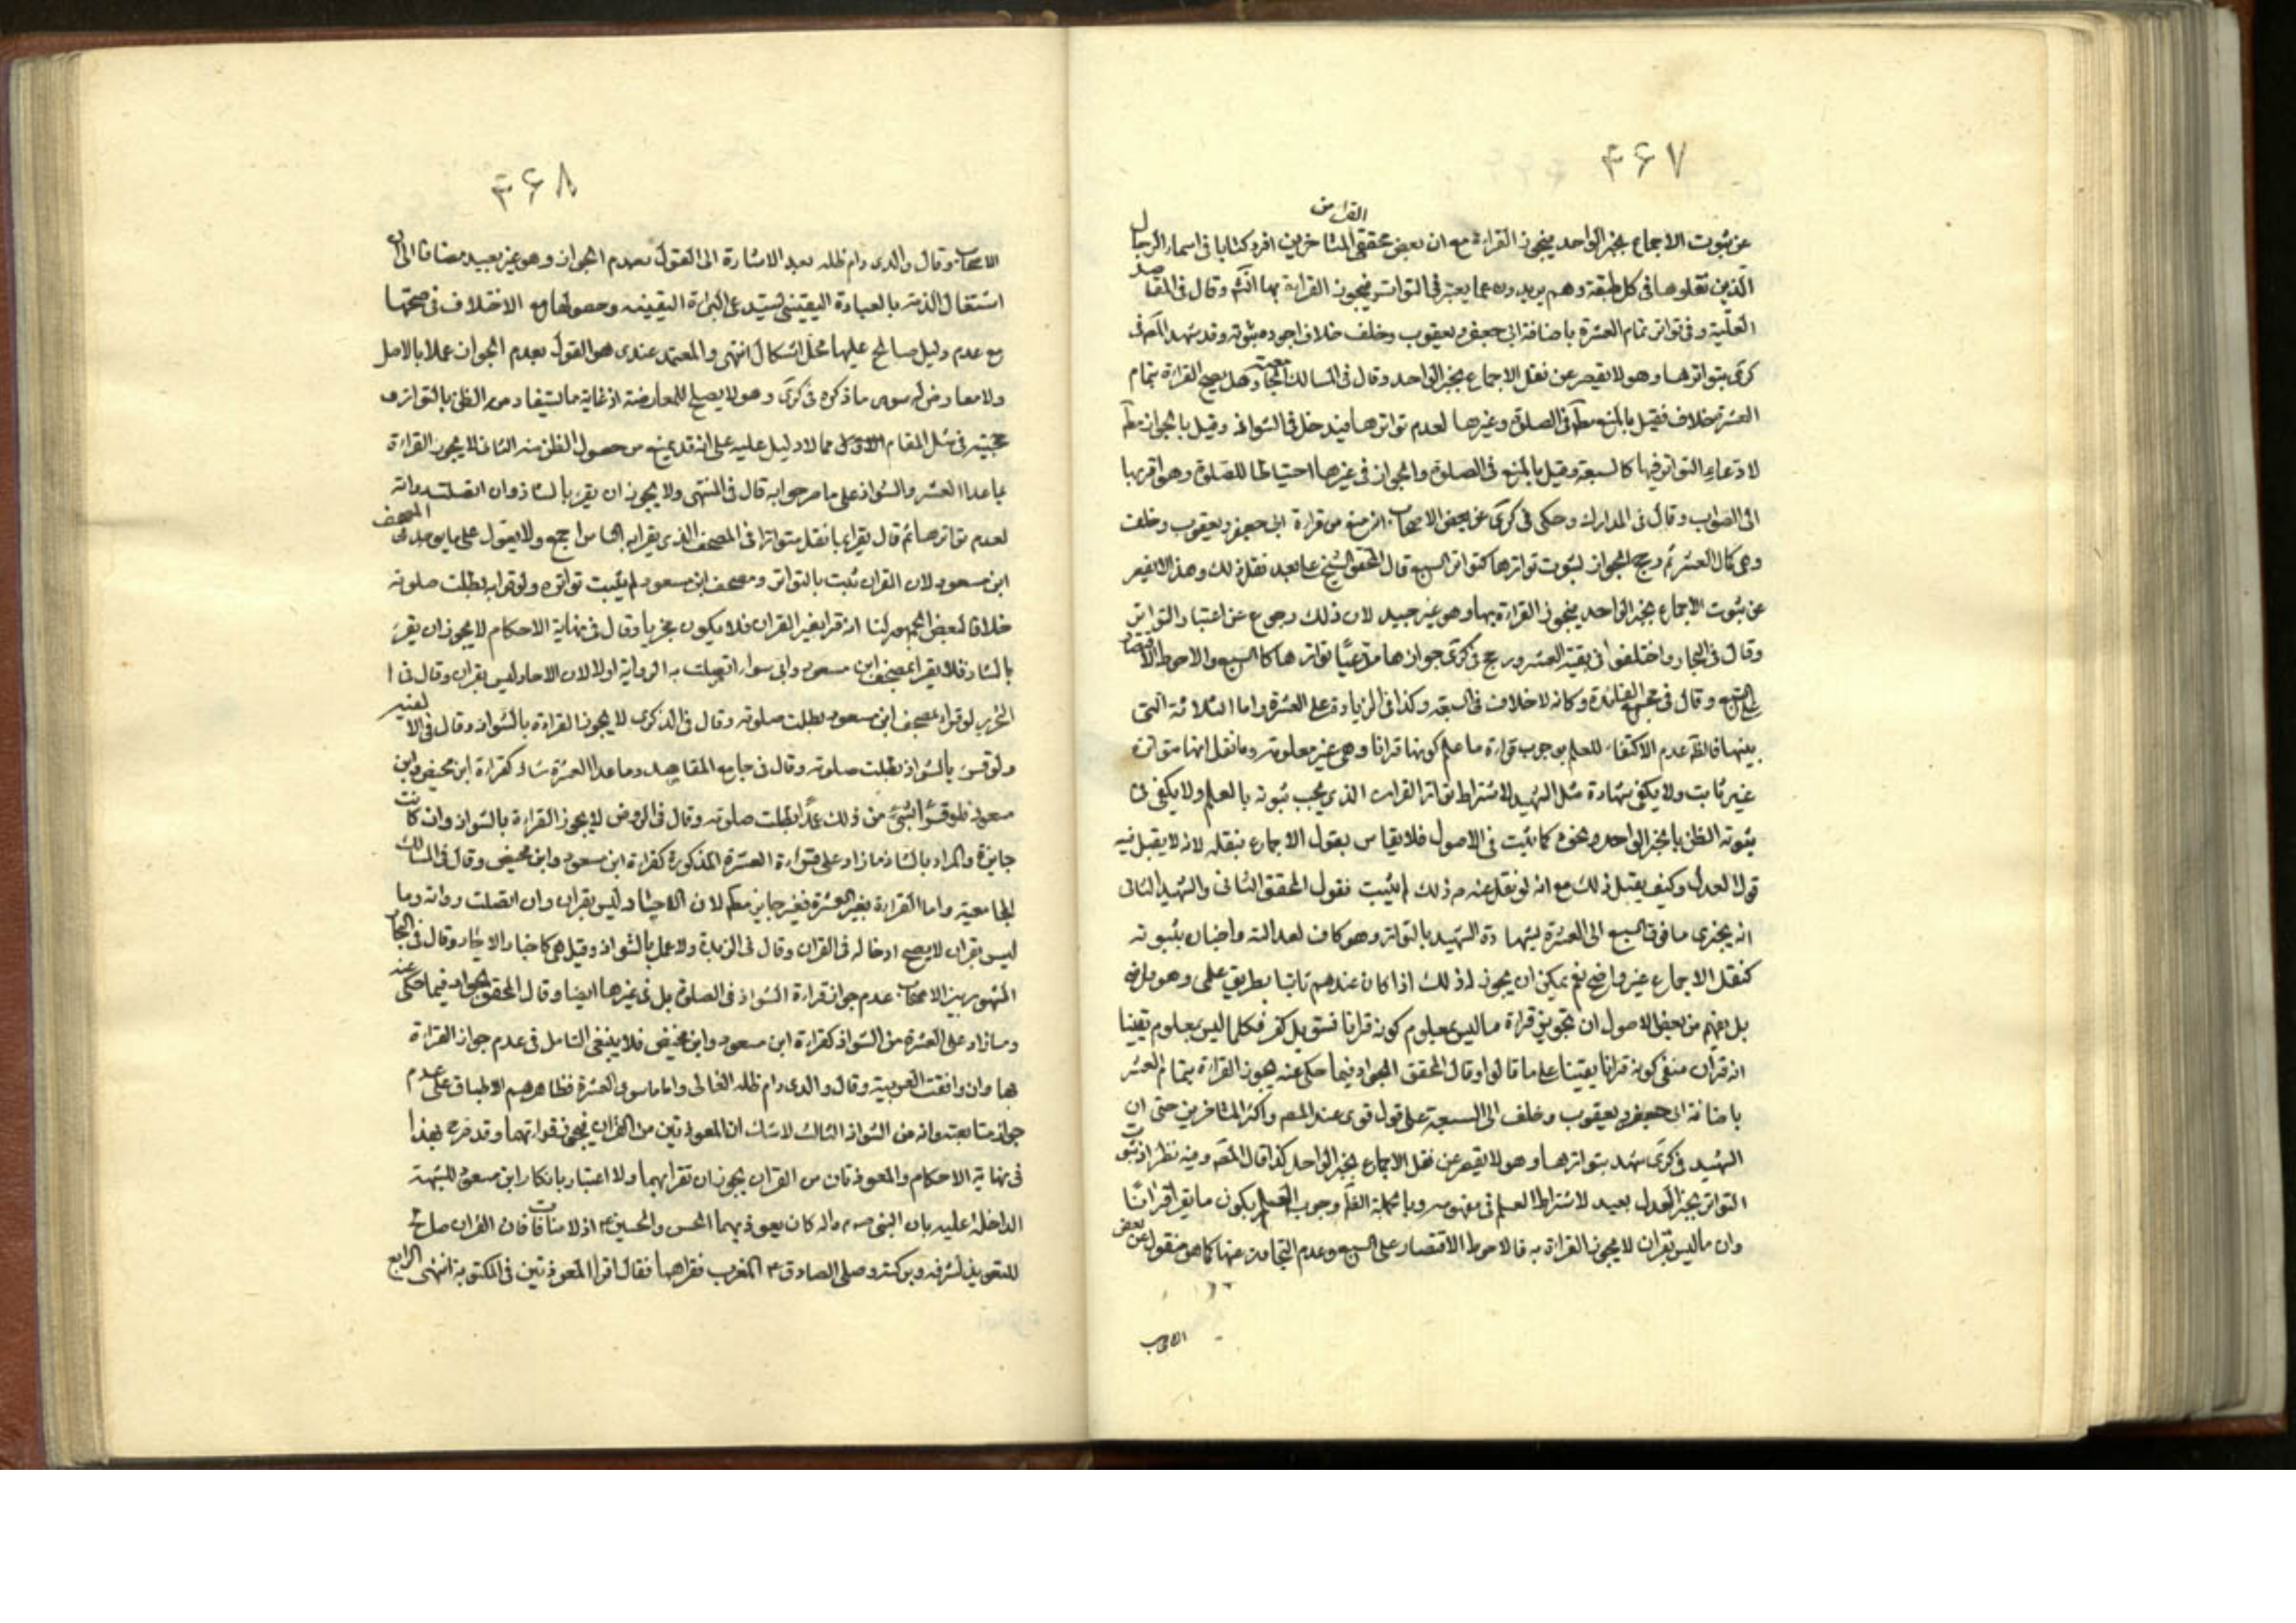 ۳۶۷
عن ثبوت الاجماع بخبر الواحد فيجوز القراءة مع ان بعض محققى القراء من المتاخرين افرد كتابا فى اسماء الرجال
الذين نقلوها فى كل طبقة وهم يزيدون عما يعتبر فى التواتر فيجوز القراءة بها انتهى وقال فى المقاصد
العلية وفى تواتر تمام العشرة باضافة ابى جعفر ويعقوب وخلف خلاف اجوده ثبوته وقد شهد المص فى
كرى بتواترها وهو لا يقصر عن نقل الاجماع بخبر الواحد وقال فى المسالك الجامعية وهل يصح القراءة بتمام
العشرة خلاف فقيل بالمنع مط فى الصلوة وغيرها لعدم تواترها فيدخل فى الشواذ وقيل بالجواز مط
لادعاء التواتر فيها كالسبعة وقيل بالمنع فى الصلوة والجواز فى غيرها احتياطا للصلوة وهو اقربها
الى الصواب وقال فى المدارك وحكى فى كرى عن بعض الاصحاب انه منع من قراءة ابى جعفر ويعقوب وخلف
وهى كمال العشر ثم رجح الجواز لثبوت تواترها كتواتر السبع قال المحقق الشيخ على بعد نقل ذلك وهذا لا يقصر
عن ثبوت الاجماع بخبر الواحد فيجوز القراءة بها وهو غير جيد لان ذلك رجوع عن اعتبار التواتر
وقال فى البحار واختلفوا فى بقية العشر ورجح فى كرى جوازها مدعيا تواترها كالسبع والاحوط الاقتصار
على السبع وقال فى مجمع الفائدة وكانه لا خلاف فى السبعة وكذا فى الزيادة على العشرة واما الثلاثة التى
بينهما فالظ عدم الاكتفاء للعلم بوجوب قراءة ما علم كونها قرانا وهى غير معلومة وما نقل انها متواترة
غير ثابت ولا يكفى شهادة مثل الشهيد لاشتراط تواتر القران الذى يجب ثبوته بالعلم ولا يكفى فى
ثبوته الظن بالخبر الواحد ونحوه كما ثبت فى الاصول فلا يقاس بقبول الاجماع بنقله لانه لا يقبل فيه
قول العدل وكيف يقبل ذلك مع انه لو نقل عنه ذلك لم يثبت فقول المحقق الثانى والشهيد الثانى
انه يجزى ما فوق السبع الى العشرة بشهادة الشهيد بالتواتر وهو كاف لعدالته واخباره بثبوته
كنقل الاجماع غير واضح نعم يمكن ان يجوز له ذلك اذا كان عندهم ثابتا بطريق علمى وهو واضح
بل يفهم من بعض الاصول ان تجويز قراءة ما ليس بمعلوم كونه قرانا فسق بل كفر فكلما ليس بمعلوم يقينا
انه قران منفى كونه قرانا يقينا على ما قالوا وقال المحقق الجواد فيما حكى عنه يجوز القراءة بتمام العشر
باضافة ابى جعفر ويعقوب وخلف الى السبعة على قول قوى عند المص واكثر المتاخرين حتى ان
الشهيد فى كرى شهد بتواترها وهو لا يقصر عن نقل الاجماع بخبر الواحد كذا قال المص وفيه نظر اذ ثبوت
التواتر بخبر العدل بعيد لاشتراط العلم فى مفهومه وبالجملة الظ وجوب العلم بكون ما يقرا قرانا
وان ما ليس بقران لا يجوز القراءة به فالاحوط الاقتصار على السبع وعدم التجاوز عنها كما هو منقول عن بعض
الاصحاب
۳۶۸
الاصحاب وقال والدى دام ظله بعد الاشارة الى القول بعدم الجواز وهو غير بعيد مضافا الى ان
اشتغال الذمة بالعبادة اليقينى يستدعى البراءة اليقينيه وحصولها مع الاختلاف فى صحتها
مع عدم دليل صالح عليها محل اشكال انتهى والمعتمد عندى هو القول بعدم الجواز عملا بالاصل
ولا معارض له سوى ما ذكره فى كرى وهو لا يصلح للمعارضة اذ غاية ما يستفاد منه الظن بالتواتر و
حجيته فى مثل المقام مما لا دليل عليه على انه قد يمنع من حصول الظن منه الثالث لا يجوز القراءة
بما عدا العشر والشواذ على ما صرح به قال فى المنتهى ولا يجوز ان يقرء بالشاذ وان اتصلت رواته
لعدم تواترها ثم قال يقرا بما نقل متواترا فى المصحف الذى يقرا به الناس اجمع ولا يعول على ما يوجد فى المصحف
ابن مسعود لان القران ثبت بالتواتر ومصحف ابن مسعود لم يثبت تواتره ولو قرا به بطلت صلوته
خلافا لبعض الجمهور لنا انه قرا بغير القران فلا يكون مجزيا وقال فى نهاية الاحكام لا يجوز ان يقرء
بالشاذ فلا يقرا بمصحف ابن مسعود وابى سواء اتصلت به الرواية اولا لان الاحاد ليس بقران وقال فى ا
لتحرير لو قرا بمصحف ابن مسعود بطلت صلوته وقال فى الذكرى لا يجوز القراءة بالشواذ وقال فى الالفيه
ولو قرء بالشواذ بطلت صلوته وقال فى جامع المقاصد وما عدا العشرة شاذ كقراءة ابن محيص وابن
مسعود فلو قرء شئ من ذلك عمدا بطلت صلوته وقال فى الروض لا يجوز القراءة بالشواذ وان كانت
جايزة والمراد بالشاذ ما زاد على قراءة العشرة المذكورة كقراءة ابن مسعود وابن محيص وقال فى المسالك
الجامعية واما القراءة بغير العشرة فغير جايز مط لان الاحاد ليس بقران وان اتصلت رواته وما
ليس بقران لا يصح ادخاله فى القران وقال فى الزبدة ولا عمل بالشواذ وقيل هى كاخبار الاحاد وقال فى البحار
المشهور بين الاصحاب عدم جواز قراءة الشواذ فى الصلوة بل فى غيرها ايضا وقال المحقق الجواد فيما حكى عنه
وما زاد على العشرة من الشواذ كقراءة ابن مسعود وابن محيص فلا ينبغى التامل فى عدم جواز القراءة
بها وان وافقت العربية وقال والدى دام ظله العالى واما ما سوى العشرة فظاهرهم الاطباق على عدم
جواز متابعته وانه من الشواذ الثالث لا شك ان المعوذتين من القران فيجوز قراءتهما وقد صرح بهذا
فى نهاية الاحكام والمعوذتان من القران يجوز ان تقرا بهما ولا اعتبار بانكار ابن مسعود للشبهة
الداخلة عليه بان النبى ص واله كان يعوذ بهما الحسن والحسين ع اذ لا منافات فان القران صالح
للتعويذ لشرفه وبركته وصلى الصادق ع المغرب فقراهما فقال اقرا المعوذتين فى المكتوبة انتهى الرابع